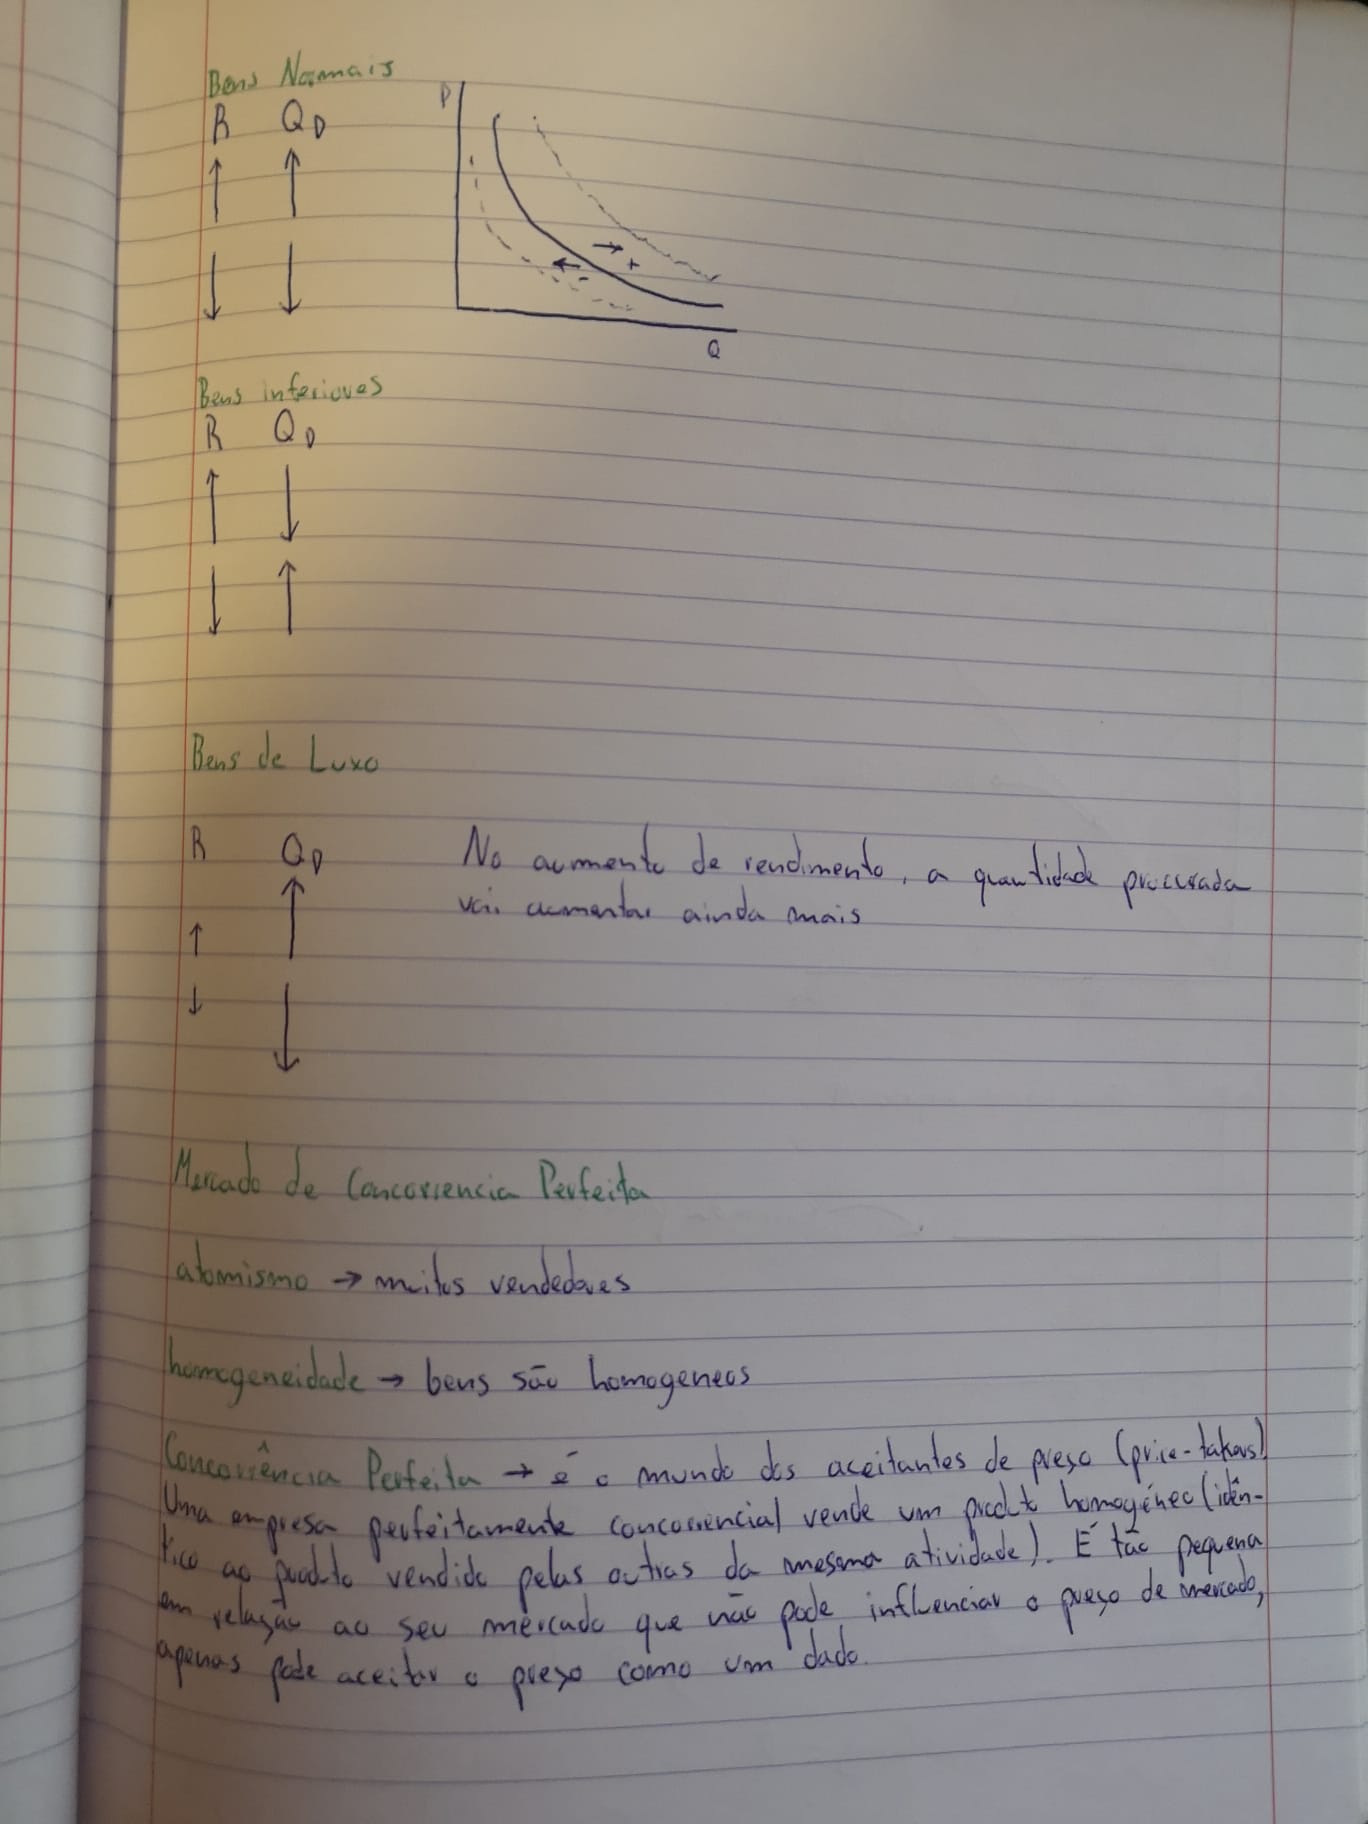 Bens Normais
R QD
↑ ↑
↓ ↓
P
→ +
← -
Q
Bens inferiores
R QD
↑ ↓
↓ ↑
Bens de Luxo
R QD
↑ ↑
↓ ↓
No aumento de rendimento, a quantidade procurada
vai aumentar ainda mais
Mercado de Concorrencia Perfeita
atomismo → muitos vendedores
homogeneidade → bens são homogeneos
Concorrência Perfeita → é o mundo dos aceitantes de preço (price-takers)
Uma empresa perfeitamente concorrencial vende um produto homogéneo (idên-
tico ao produto vendido pelas outras da mesma atividade). É tão pequena
em relação ao seu mercado que não pode influenciar o preço de mercado,
apenas pode aceitar o preço como um dado.